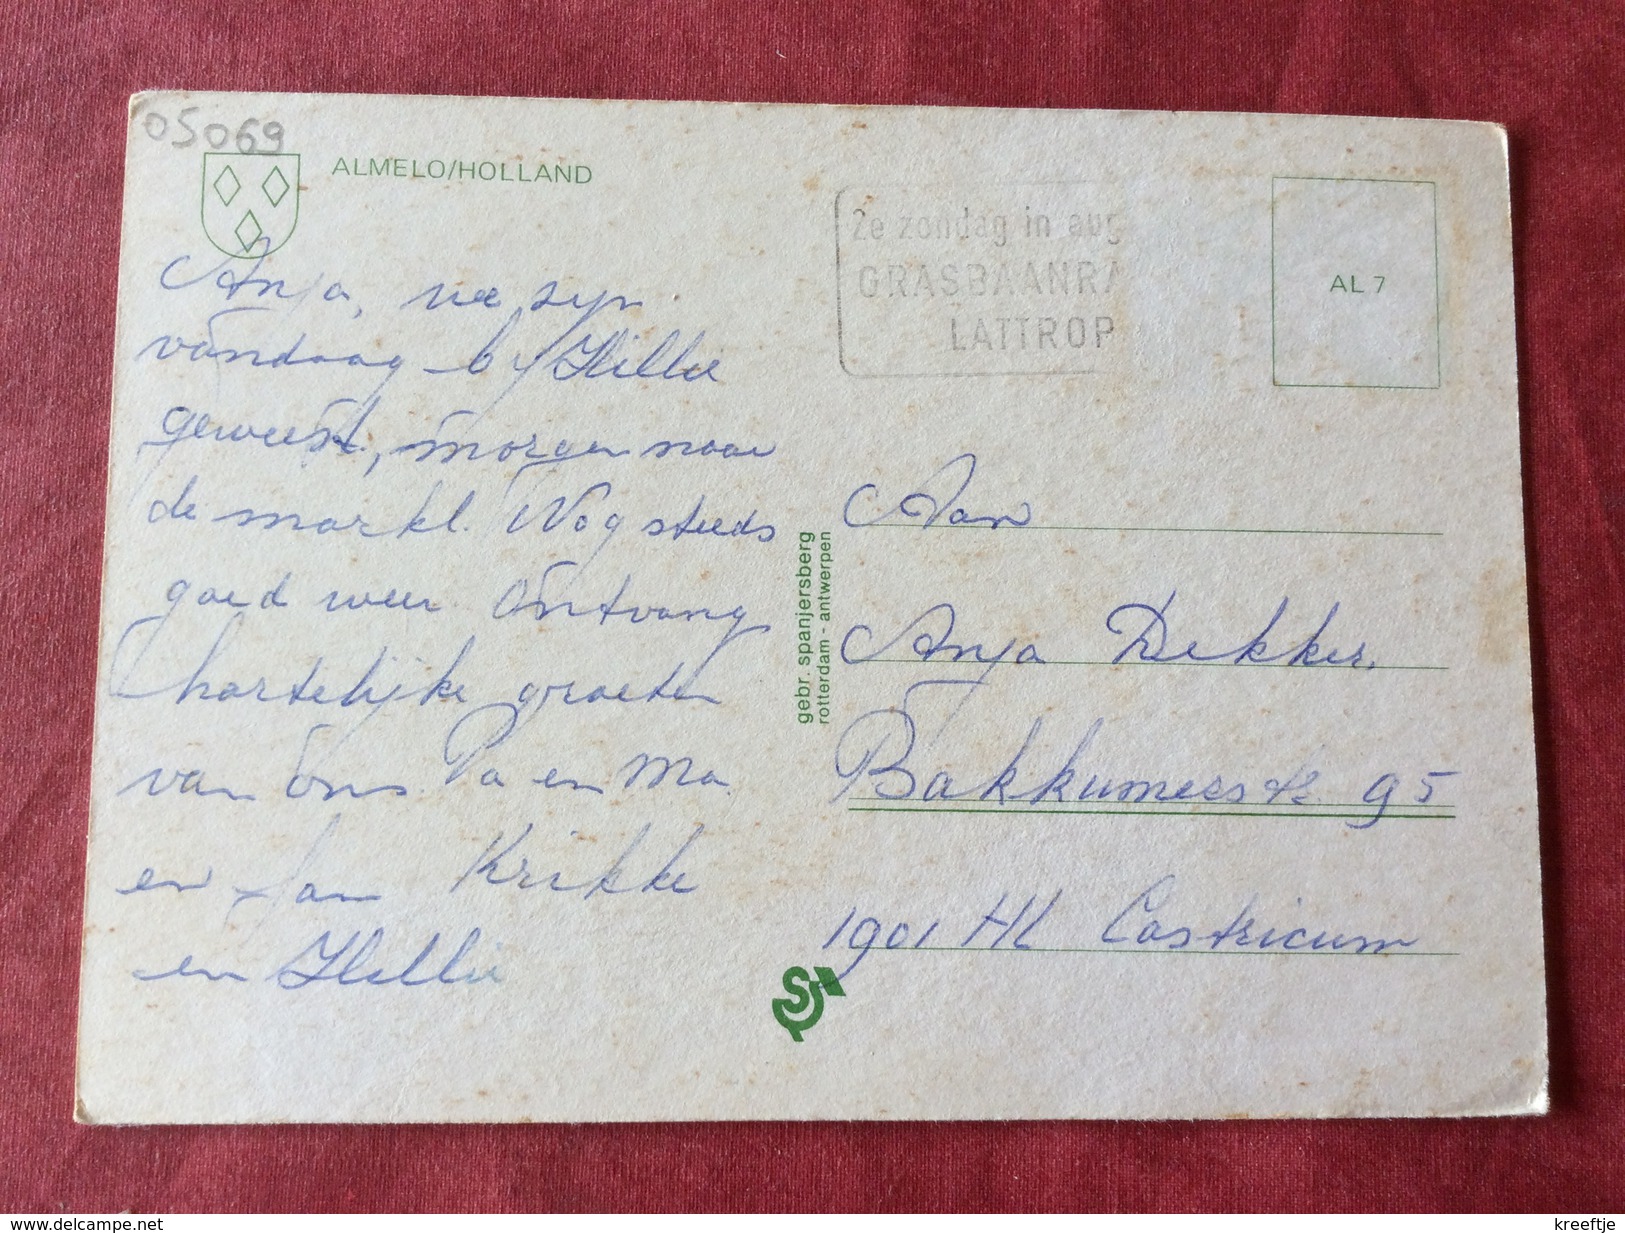 05069
ALMELO/HOLLAND
2e zondag in aug
GRASBAANRA
LATTROP
AL 7
Anja, we zijn
vandaag bij Hillie
geweest, morgen naar
de markt. Nog steeds
goed weer. Ontvang
hartelijke groeten
van ons Pa en Ma.
en Jan Krikke
en Hillie
gebr. spanjersberg
rotterdam - antwerpen
Aan
Anja Dekker.
Bakkumerstr. 95
1901 HL Castricum
www.delcampe.net
kreeftje